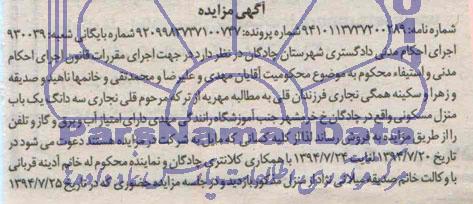 آگهی مزایده
شماره نامه: ۹۴۱۰۱۱۳۷۳۷۲۰۰۲۸۹ شماره پرونده: ۹۲۰۹۹۸۳۷۳۷۱۰۰۷۴۷ شماره بایگانی شعبه: ۹۳۰۰۳۹
اجرای احکام مدنی دادگستری شهرستان چادگان در نظر دارد در جهت اجرای مقررات قانون اجرای احکام
مدنی و استیفاء محکوم به موضوع محکومیت آقایان مهدی و علیرضا و محمدتقی و خانمها ناهید و صدیقه
و زهرا و سکینه همگی نجاری فرزندان قلی به مطالبه مهریه از ترکه مرحوم قلی نجاری سه دانگ یک باب
منزل مسکونی واقع در چادگان خ خرمشهر جنب آموزشگاه رانندگی مهدی دارای امتیاز آب و برق و گاز و تلفن
را از طریق مزایده به فروش رساند لذا از کلیه کسانی که مایل به شرکت در مزایده هستند دعوت می شود در
تاریخ ۱۳۹۴/۷/۲۰ لغایت ۱۳۹۴/۷/۲۴ با همکاری کلانتری چادگان و نماینده محکوم له خانم آدینه قربانی
با وکالت خانم صدیقه میلادی نژاد از منزل مذکور بازدید و در جلسه مزایده حضوری که در تاریخ ۱۳۹۴/۷/۲۵
ParsNamadData